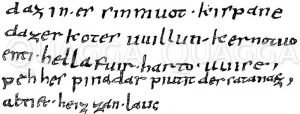 daz in·es sinmuot·kispane
dazer kotes uuillun·kernotuo
enti·hella fuir·harto·uuise,
pehhes pina dar piutit der satanaz,
altist·heizzan·lauc